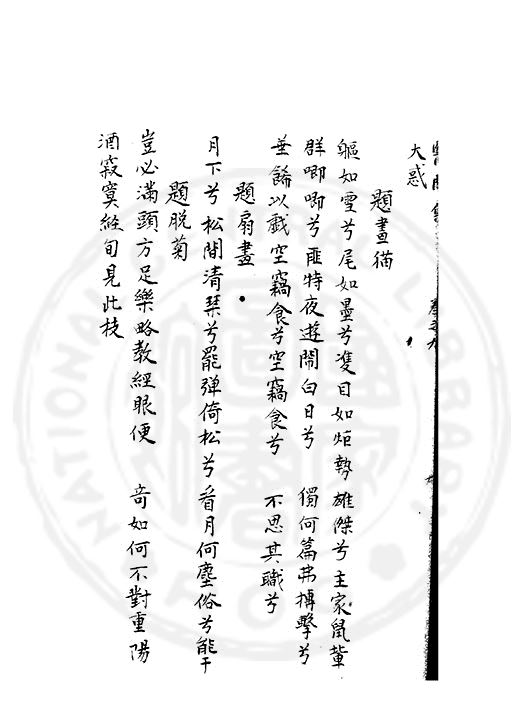 大惑
題畫猫
軀如雪兮尾如墨兮隻目如炬勢雄傑兮主家鼠軰
群唧唧兮匪特夜遊鬧白日兮 獨何篇弗搏擊兮
垂餙以戱空竊食兮空竊食兮 不思其職兮
題扇畫
月下兮松間清琹兮罷弹倚松兮看月何塵俗兮能干
題脱菊
豈必滿頭方足樂略教經眼便 奇如何不對重陽
酒寂寞經旬見此枝